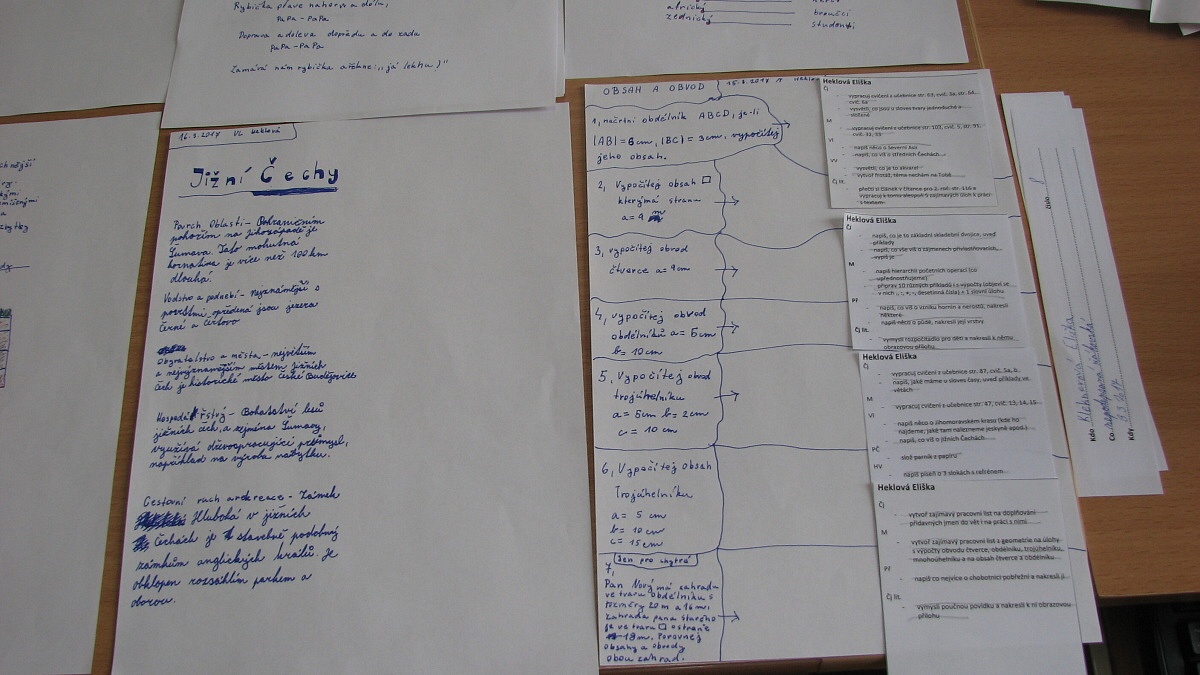 Rybička plave nahoru a dolů,
PaPa - PaPa
Doprava a doleva dopředu a do zadu
PaPa - PaPa
Zamává nám rybička a řekne: „já lekla!"
africký
zednický
herci
broučci
studenti
16.3.2017 VL Heklová
Jižní Čechy
Povrch Oblasti - Pohraničním
pohořím na jihozápadě je
Šumava. Tato mohutná
hornatina je více než 100 km
dlouhá.
Vodstvo a podnebí - nejznámější s
Černé a Čertovo
Obyvatelstvo a města - největším
a nejvýznamnějším městem jižních
Čech je historické město České Budějovice
Hospodářství - Bohatství lesů
jižních čech, a zejména Šumavy,
využívá dřevozpracující průmysl,
například na výroba nábytku.
Cestovní ruch a rekreace - Zámek
Hluboká v jižních
Čechách je stavebně podobný
zámkům anglických králů. Je
obklopen rozsáhlím parkem a
oborou.
OBSAH A OBVOD
1, načrtni obdélník ABCD, je-li
|AB| = 6 cm, |BC| = 3 cm, vypočítej
jeho obsah.
2, Vypočítej obsah □
kterýmá stranu
a = 4 m
3, vypočítej obvod
čtverce a = 9 cm
4, vypočítej obvod
obdélníků a = 5 cm
b = 10 cm
5, Vypočítej obvod
trojúhelníku
a = 5cm b = 2cm
c = 10 cm
6, Vypočítej obsah
Trojúhelníku
a = 5 cm
b = 10 cm
c = 15 cm
Jen pro chytré
7,
Pan Nový má zahrad-
ve tvaru obdélníku s
rozměry 20 m a 16 m.
zahrada pana Starého
je ve tvaru □ o straně
18 m. Porovnej
obsahy a obvody
obou zahrad.
Heklová Eliška
Čj
- vypracuj cvičení z učebnice str. 63, cvič. 3a, str. 64,
cvič. 6a
- vysvětli, co jsou o sloves tvary jednoduché a
složené
M
- vypracuj cvičení z učebnice str. 101, cvič. 5, str. 91,
cvič. 32, 33
Vl
- napiš něco o Severní Asii
- napiš, co víš o středních Čechách
VV
- vysvětli, co je to skvaret
- vytvoř frotáž, téma nechám na Tobě
Čj lit.
- přečti si článek v čítance pro 2. roč. str. 116 a
vypracuj k tomu alespoň 5 zajímavých úloh k práci
s textem
Heklová Eliška
Čj
- napiš, co je to základní skladební dvojice, uveď
příklady
- napiš, co vše víš o zájmenech přivlastňovacích,
vypiš je
M
- napiš hierarchii početních operací (co
upřednostňujeme)
- připrav 10 různých příkladů i s výpočty (objeví se
v nich -, :, +, ·, desetinná čísla) + 1 slovní úlohu
Př
- napiš, co víš o vzniku hornin a nerostů, nakresli
některé
- napiš něco o půdě, nakresli její vrstvy
Čj lit.
- vymysli rozpočítadlo pro děti a nakresli k němu
obrazovou přílohu
Heklová Eliška
Čj
- vypracuj cvičení z učebnice str. 87, cvič. 5a, b
- napiš, jaké máme u sloves časy, uveď příklady ve
větách
M
- vypracuj cvičení z učebnice str. 47, cvič. 13, 14, 15
Vl
- napiš něco o Jihomoravském krasu (kde ho
najdeme, jaké tam nalezneme jeskyně apod.)
- napiš, co víš o jižních Čechách
PČ
- slož parník z papíru
HV
- napiš píseň o 3 slokách s refrénem
Heklová Eliška
Čj
- vytvoř zajímavý pracovní list na doplňování
přídavných jmen do vět i na práci s nimi
M
- vytvoř zajímavý pracovní list z geometrie na úlohy
s výpočty obvodu čtverce, obdélníku, trojúhelníku,
mnohoúhelníku a na obsah čtverce a obdélníku
Př
- napiš co nejvíce o chobotnici pobřežní a nakresli ji
Čj lit.
- vymysli poučnou povídku a nakresli k ní obrazovou
přílohu
Číslo:
Kdo
Co
Kdy